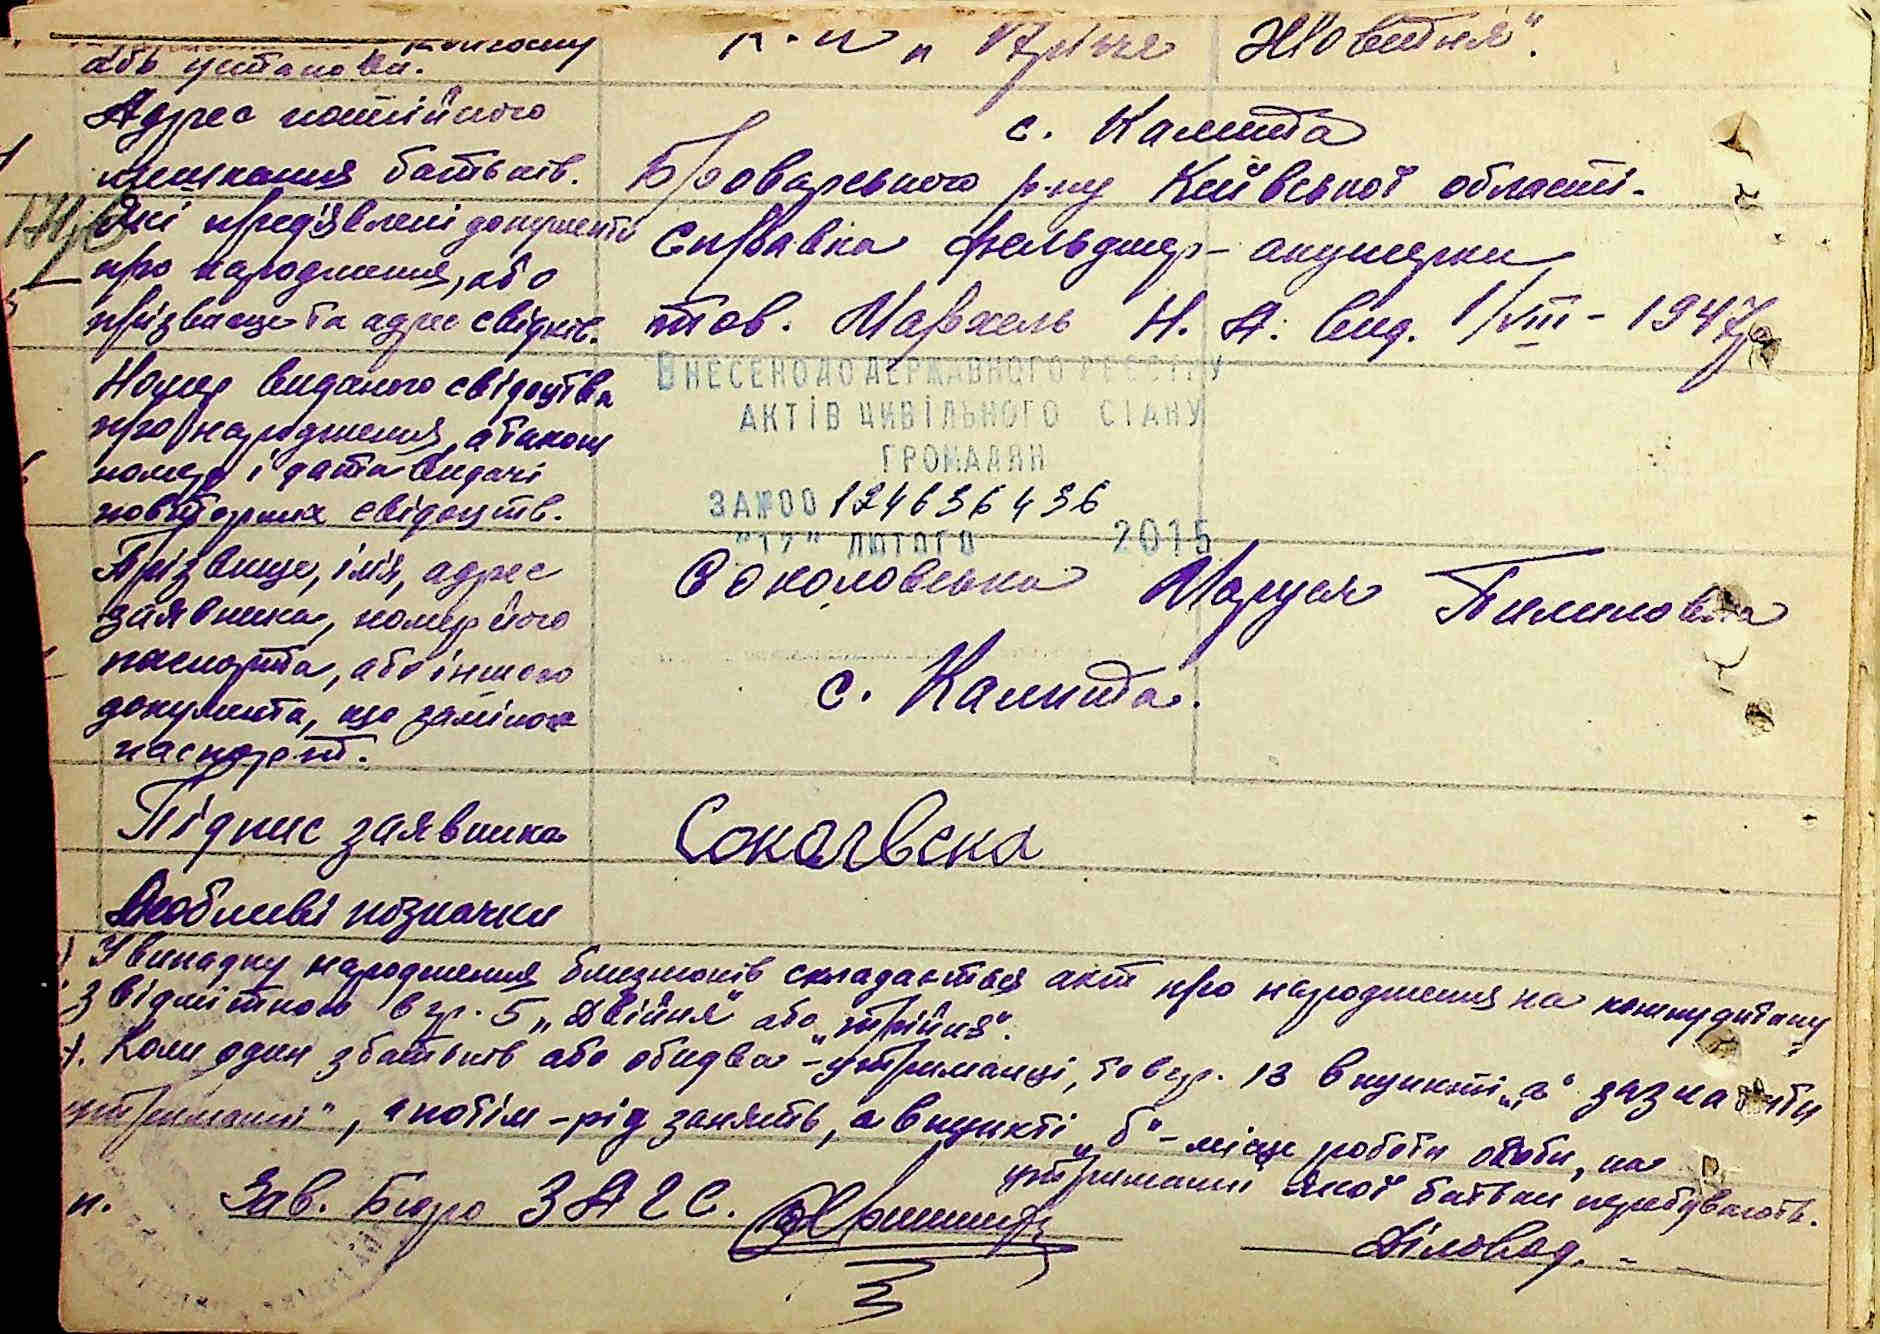 або установи.
к-п „17 річчя Жовтня".
Адрес постійного
мешкання батьків.
с. Калита
Броварського р-ну Київської області.
Які пред'явлені документи
про народження, або
прізвище та адрес свідків.
Справка фельдшер-акушерки
тов. Мархель Н. А. вид. 1/VIII-1947р
Номер виданого свідоцтва
про народження, а також
номер і дата видачі
повторних свідоцтв.
ВНЕСЕНО ДО ДЕРЖАВНОГО РЕЄСТРУ
АКТІВ ЦИВІЛЬНОГО СТАНУ
ГРОМАДЯН
ЗА №00 124636436
"12" ЛЮТОГО 2015
Прізвище, ім'я, адрес
заявника, номер його
паспорта, або іншого
документа, що заміняє
паспорт.
Соколовська Маруся Пилиповна
с. Калита.
Підпис заявника
Сокалвска
Особливі позначки
У випадку народження близнюків складається акт про народження на кожну дитину
з відміткою в гр. 5 „Двійня" або „трійня".
Коли один з батьків або обидва - утриманці, то в гр. 13 в пункті „а" зазначити
утриманні", а потім - рід занять, а в пункті „б" - місце роботи особи, на
утриманні якої батьки перебувають.
п. Зав. Бюро ЗАГС.
Діловод.